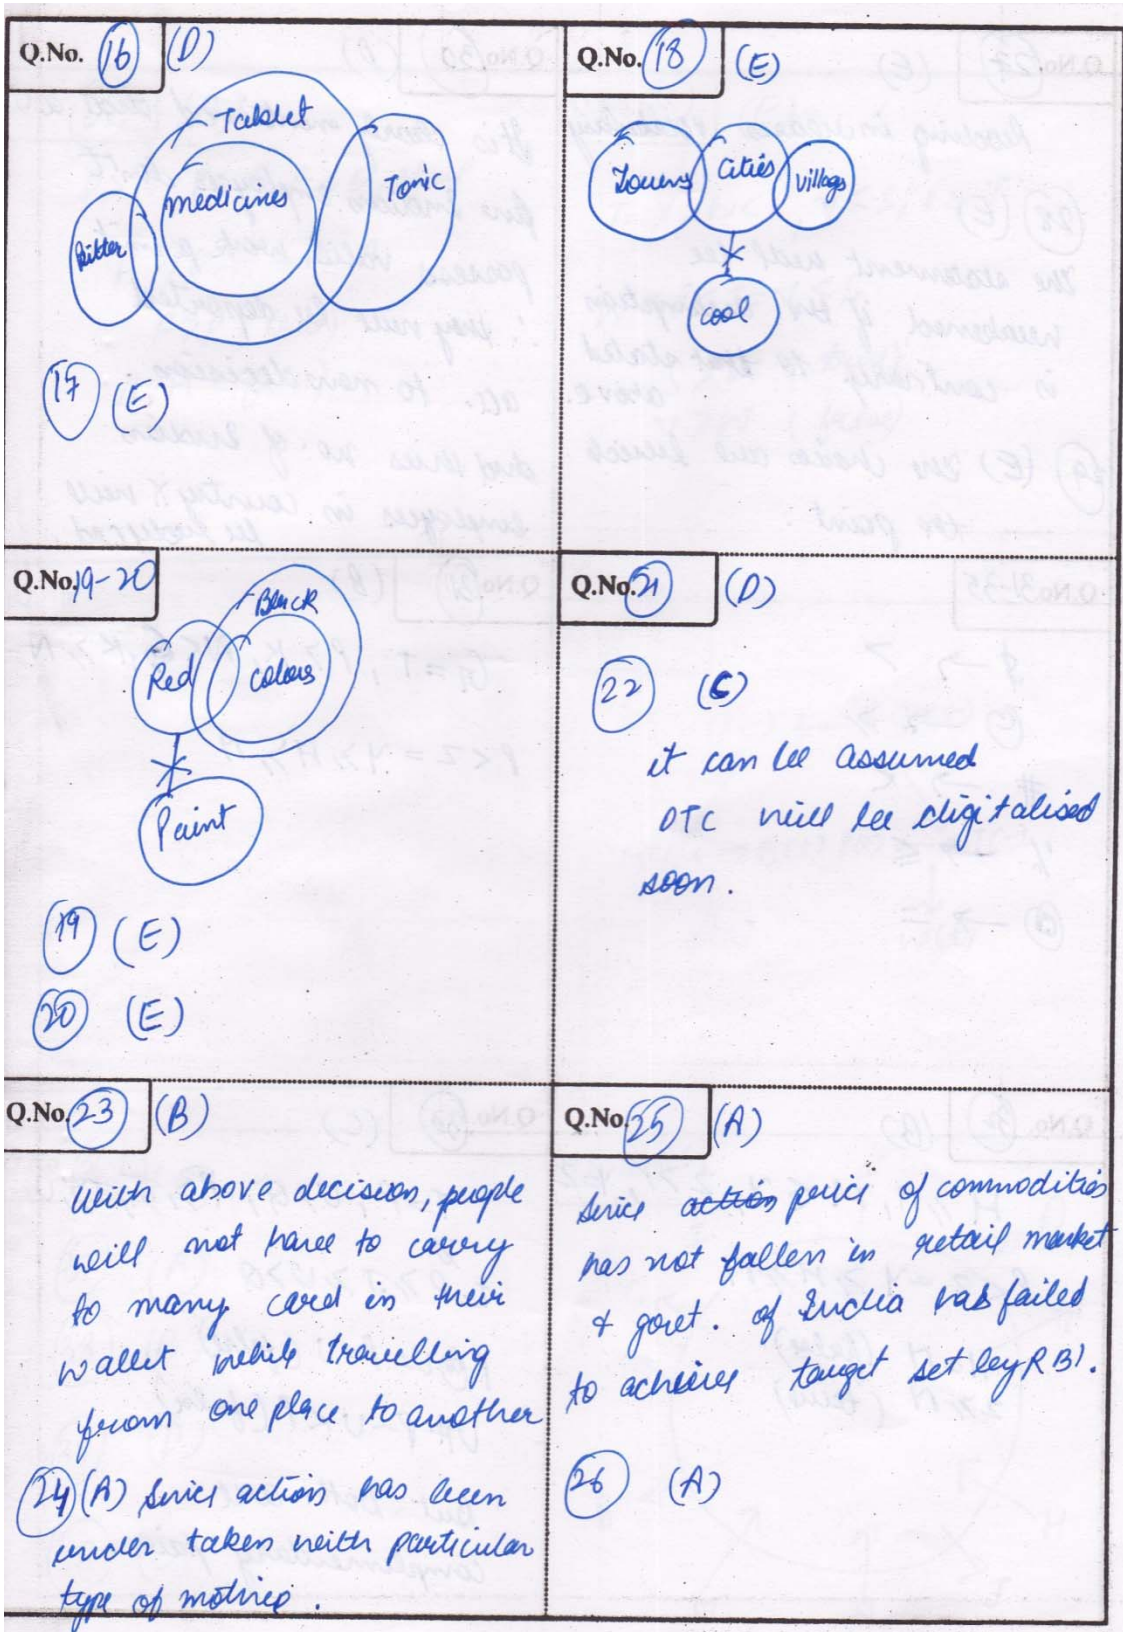 Q.No. 16 (D)
Tablet
medicines
Tonic
Bitter
17 (E)
Q.No. 18 (E)
Towns
Cities
Villags
cool
Q.No. 19-20
Black
Red
colours
Paint
19 (E)
20 (E)
Q.No. 21 (D)
22 (C)
it can be assumed
DTC will be digitalised
soon.
Q.No. 23 (B)
With above decision, people
will not have to carry
to many card in their
wallet while travelling
from one place to another
24 (A) Since action has been
under taken with particular
type of motive.
Q.No. 25 (A)
Since action price of commodities
has not fallen in retail market
& govt. of India has failed
to achieve target set by RBI.
26 (A)